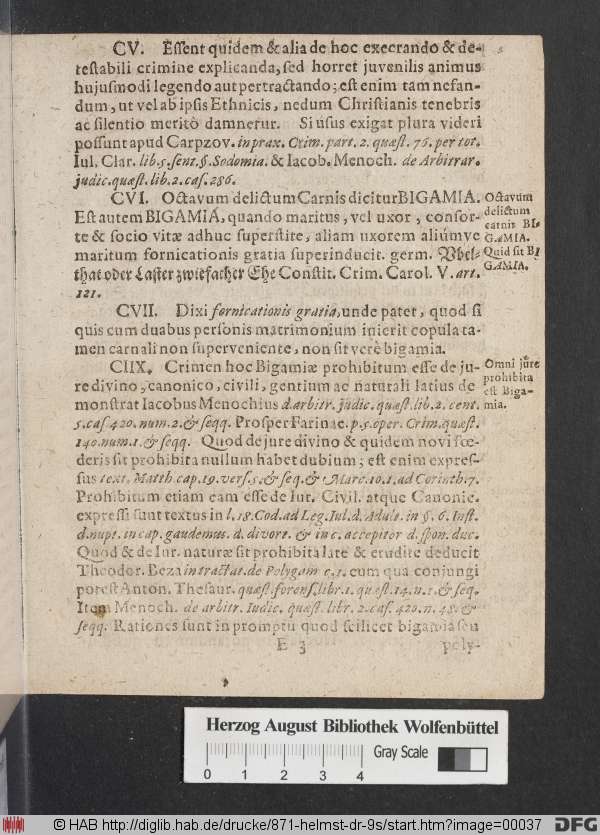 CV. Essent quidem & alia de hoc execrando & de-
testabili crimine explicanda, sed horret juvenilis animus
hujusmodi legendo aut pertractando; est enim tam nefan-
dum, ut vel ab ipsis Ethnicis, nedum Christianis tenebris
ac silentio meritò damnetur. Si usus exigat plura videri
possunt apud Carpzov. in prax. Crim. part. 2. quæst. 76. per tot.
Iul. Clar. lib. 5. sent. §. Sodomia. & Iacob. Menoch. de Arbitrar.
judic. quæst. lib. 2. cas. 286.
CVI. Octavum delictum Carnis dicitur BIGAMIA.
Est autem BIGAMIA, quando maritus, vel uxor, consor-
te & socio vitæ adhuc superstite, aliam uxorem aliúmve
maritum fornicationis gratia superinducit. germ. Vbel-
that oder Laster zwiefacher Ehe Constit. Crim. Carol. V. art.
121.
Octavum
delictum
carnis BI-
GAMIA.
Quid sit BI
GAMIA.
CVII. Dixi fornicationis gratia, unde patet, quod si
quis cum duabus personis matrimonium inierit copula ta-
men carnali non superveniente, non sit verè bigamia.
CIIX. Crimen hoc Bigamiæ prohibitum esse de ju-
re divino, canonico, civili, gentium ac naturali latius de
monstrat Iacobus Menochius d. arbitr. judic. quæst. lib. 2. cent.
5. cas. 420. num. 2. & seqq. Prosper Farinac. p. 5. oper. Crim. quæst.
140. num. 1. & seqq. Quod de jure divino & quidem novi fœ-
deris sit prohibita nullum habet dubium; est enim expres-
sus text. Matth cap. 19. vers. 5. & seq. & Marc. 10. 1. ad Corinth. 7.
Prohibitum etiam eam esse de Iur. Civil. atque Canonic.
expressi sunt textus in l. 18. Cod. ad Leg. Iul. d. Adult. in §. 6. Inst.
d. nupt. in cap. gaudemus. d. divort. & in c. accepitor d. spon. duc.
Quod & de Iur. naturæ sit prohibita late & erudite deducit
Theodor. Beza in tractat. de Polygam c. 1. cum qua conjungi
potest Anton. Thesaur. quæst. forens. libr. 1. quæst. 14. n. 1. & seq.
Item Menoch. de arbitr. Iudic. quæst. libr. 2. cas. 420. n. 48. &
seqq. Rationes sunt in promptu quod scilicet bigamia seu
Omni jure
prohibita
est Biga-
mia.
E 3 poly-
Herzog August Bibliothek Wolfenbüttel
Gray Scale
0 1 2 3 4
© HAB http://diglib.hab.de/drucke/871-helmst-dr-9s/start.htm?image=00037
DFG